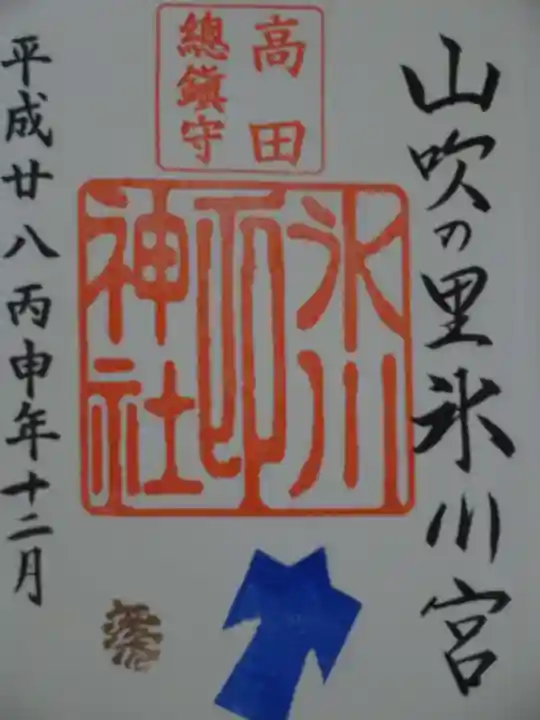 山吹の里氷川宮
高田
總鎮守
氷川
印
神社
平成廿八丙申年十二月